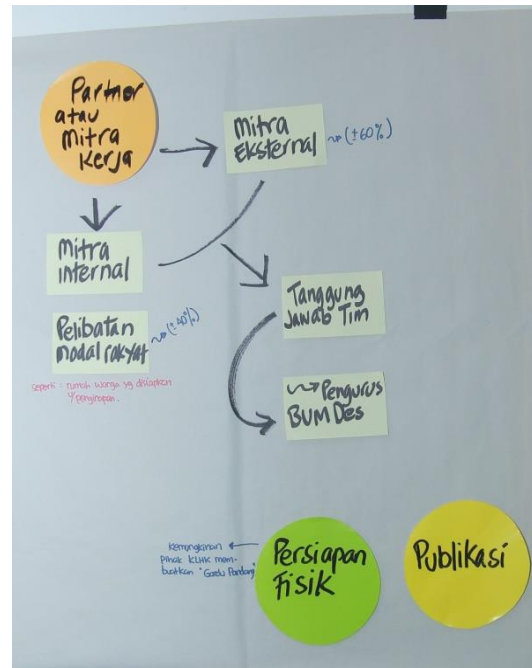 Partner
atau
Mitra
Kerja
Mitra
Eksternal
(±60%)
Mitra
internal
Pelibatan
modal rakyat
(±40%)
seperti : rumah warga yg disiapkan
u/ penginapan.
Tanggung
Jawab Tim
Pengurus
BUM Des
Kemungkinan
Pihak KLHK mem-
buatkan "Gardu Pandang"
Persiapan
Fisik
Publikasi